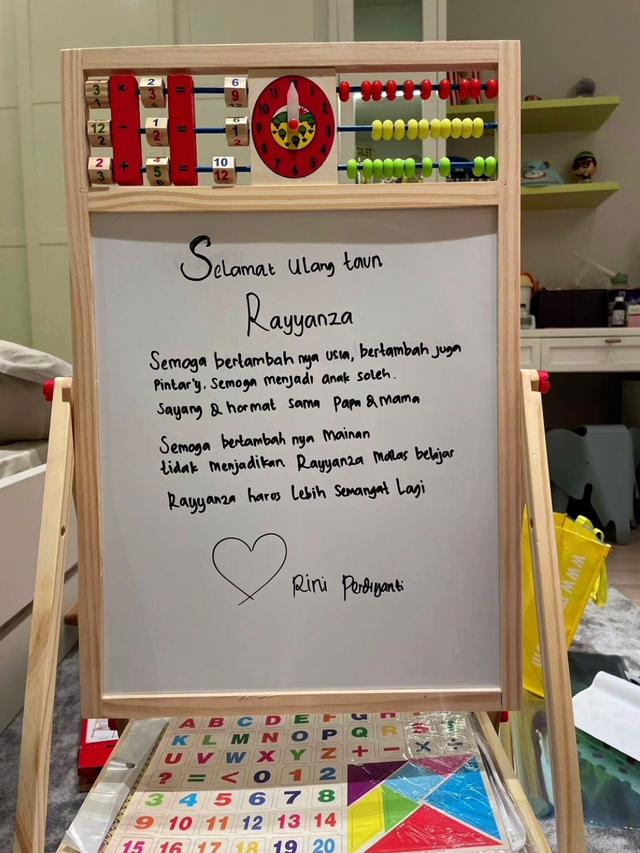 3 × 2 = 6
1 3 9
12 - 1 = 6 1
2 2 2
2 + 4 = 10
3 5 12
11 12 1 2 3 4 5 6 7 8 9 10
Selamat Ulang taun
Rayyanza
Semoga bertambah nya usia, bertambah juga
pintar'y. Semoga menjadi anak soleh.
Sayang & hormat sama Papa & Mama
Semoga bertambah nya Mainan
tidak menjadikan Rayyanza Malas belajar
Rayyanza harus Lebih Semangat Lagi
Rini Perdiyanti
www.
A B C D E F G H
K L M N O P Q R S
U V W X Y Z + - × ÷
? = < 0 1 2
3 4 5 6 7 8
9 10 11 12 13 14
15 16 17 18 19 20